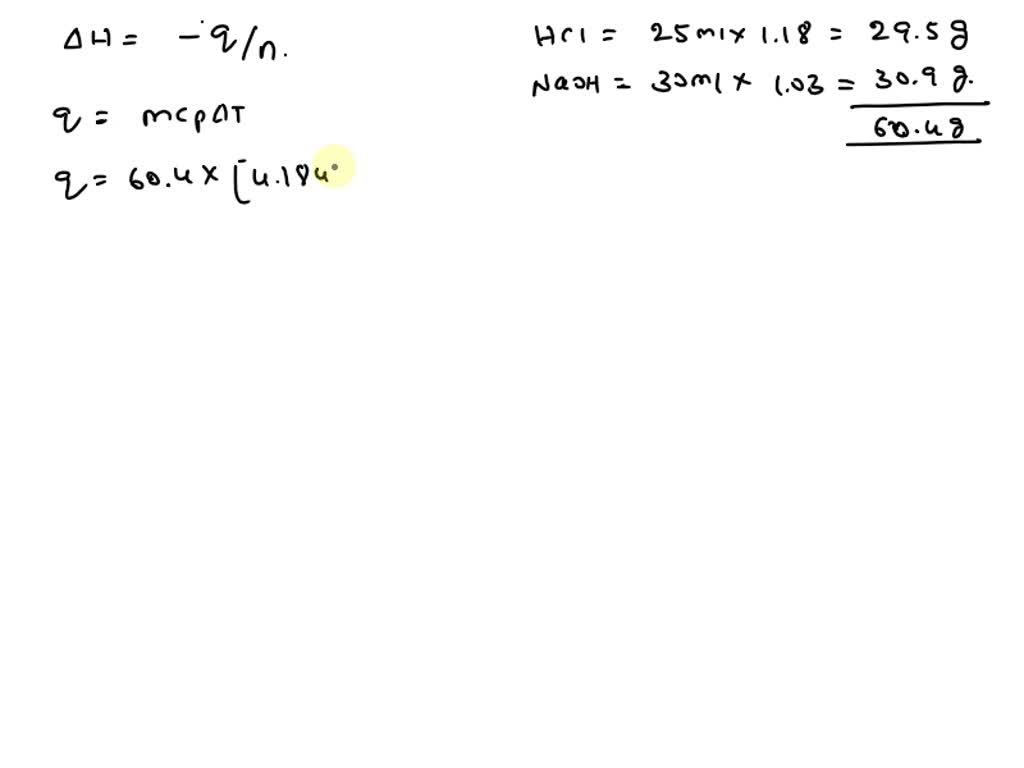 ΔH = -q/n.
q = mcpΔT
q = 60.4 x [4.184
HCl = 25ml x 1.18 = 29.5 g
NaOH = 30ml x 1.03 = 30.9 g.
60.4 g